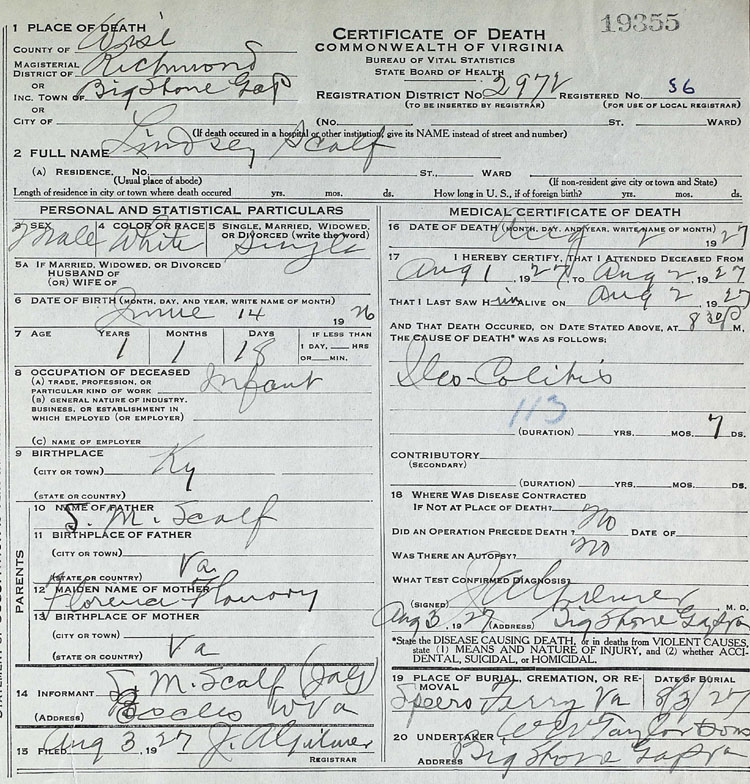 19355
1 PLACE OF DEATH
COUNTY OF Wise
MAGISTERIAL DISTRICT OF Richmond
OR
INC. TOWN OF Big Stone Gap
OR
CITY OF
CERTIFICATE OF DEATH
COMMONWEALTH OF VIRGINIA
BUREAU OF VITAL STATISTICS
STATE BOARD OF HEALTH
REGISTRATION DISTRICT NO. 297V REGISTERED NO. 56
(TO BE INSERTED BY REGISTRAR) (FOR USE OF LOCAL REGISTRAR)
(No. ST. WARD)
(If death occured in a hospital or other institution, give its NAME instead of street and number)
2 FULL NAME Lindsey Scalf
(A) RESIDENCE, No. ST., WARD
(Usual place of abode) (If non-resident give city or town and State)
Length of residence in city or town where death occured yrs. mos. ds. How long in U. S., if of foreign birth? yrs. mos. ds.
PERSONAL AND STATISTICAL PARTICULARS
3 SEX 4 COLOR OR RACE 5 SINGLE, MARRIED, WIDOWED, OR DIVORCED (write the word)
Male White Single
5A IF MARRIED, WIDOWED, OR DIVORCED
HUSBAND OF
(OR) WIFE OF
6 DATE OF BIRTH (MONTH, DAY, AND YEAR, WRITE NAME OF MONTH)
June 14 1926
7 AGE YEARS MONTHS DAYS IF LESS THAN
1 1 18 1 DAY, HRS
OR MIN.
8 OCCUPATION OF DECEASED
(A) TRADE, PROFESSION, OR
PARTICULAR KIND OF WORK Infant
(B) GENERAL NATURE OF INDUSTRY.
BUSINESS, OR ESTABLISHMENT IN
WHICH EMPLOYED (OR EMPLOYER)
(C) NAME OF EMPLOYER
9 BIRTHPLACE
(CITY OR TOWN) Ky
(STATE OR COUNTRY)
PARENTS
10 NAME OF FATHER
S. M. Scalf
11 BIRTHPLACE OF FATHER
(CITY OR TOWN)
(STATE OR COUNTRY) Va
12 MAIDEN NAME OF MOTHER
Florence
13 BIRTHPLACE OF MOTHER
(CITY OR TOWN)
(STATE OR COUNTRY) Va
14 INFORMANT S. M. Scalf
(ADDRESS) Eccles W Va
15 FILED Aug 3, 1927 J. A Gilmer
REGISTRAR
MEDICAL CERTIFICATE OF DEATH
16 DATE OF DEATH (MONTH, DAY, AND YEAR, WRITE NAME OF MONTH)
Aug 2 1927
17 I HEREBY CERTIFY, THAT I ATTENDED DECEASED FROM
Aug 1, 1927, TO Aug 2, 1927
THAT I LAST SAW H im ALIVE ON Aug 2, 1927
AND THAT DEATH OCCURED, ON DATE STATED ABOVE, AT 8 30 P M.
THE CAUSE OF DEATH* WAS AS FOLLOWS:
Ileo-Colitis
113
(DURATION) YRS. MOS. 7 DS.
CONTRIBUTORY
(SECONDARY)
(DURATION) YRS. MOS. DS.
18 WHERE WAS DISEASE CONTRACTED
IF NOT AT PLACE OF DEATH?
DID AN OPERATION PRECEDE DEATH? No DATE OF
WAS THERE AN AUTOPSY? No
WHAT TEST CONFIRMED DIAGNOSIS?
(SIGNED) J A Gilmer M. D.
Aug 3, 1927 (ADDRESS) Big Stone Gap Va
*State the DISEASE CAUSING DEATH, or in deaths from VIOLENT CAUSES,
state (1) MEANS AND NATURE OF INJURY, and (2) whether ACCI-
DENTAL, SUICIDAL, or HOMICIDAL.
19 PLACE OF BURIAL, CREMATION, OR RE- DATE OF BURIAL
MOVAL
Speers Ferry Va 8/3/27
20 UNDERTAKER W W Taylor & Sons
ADDRESS Big Stone Gap Va